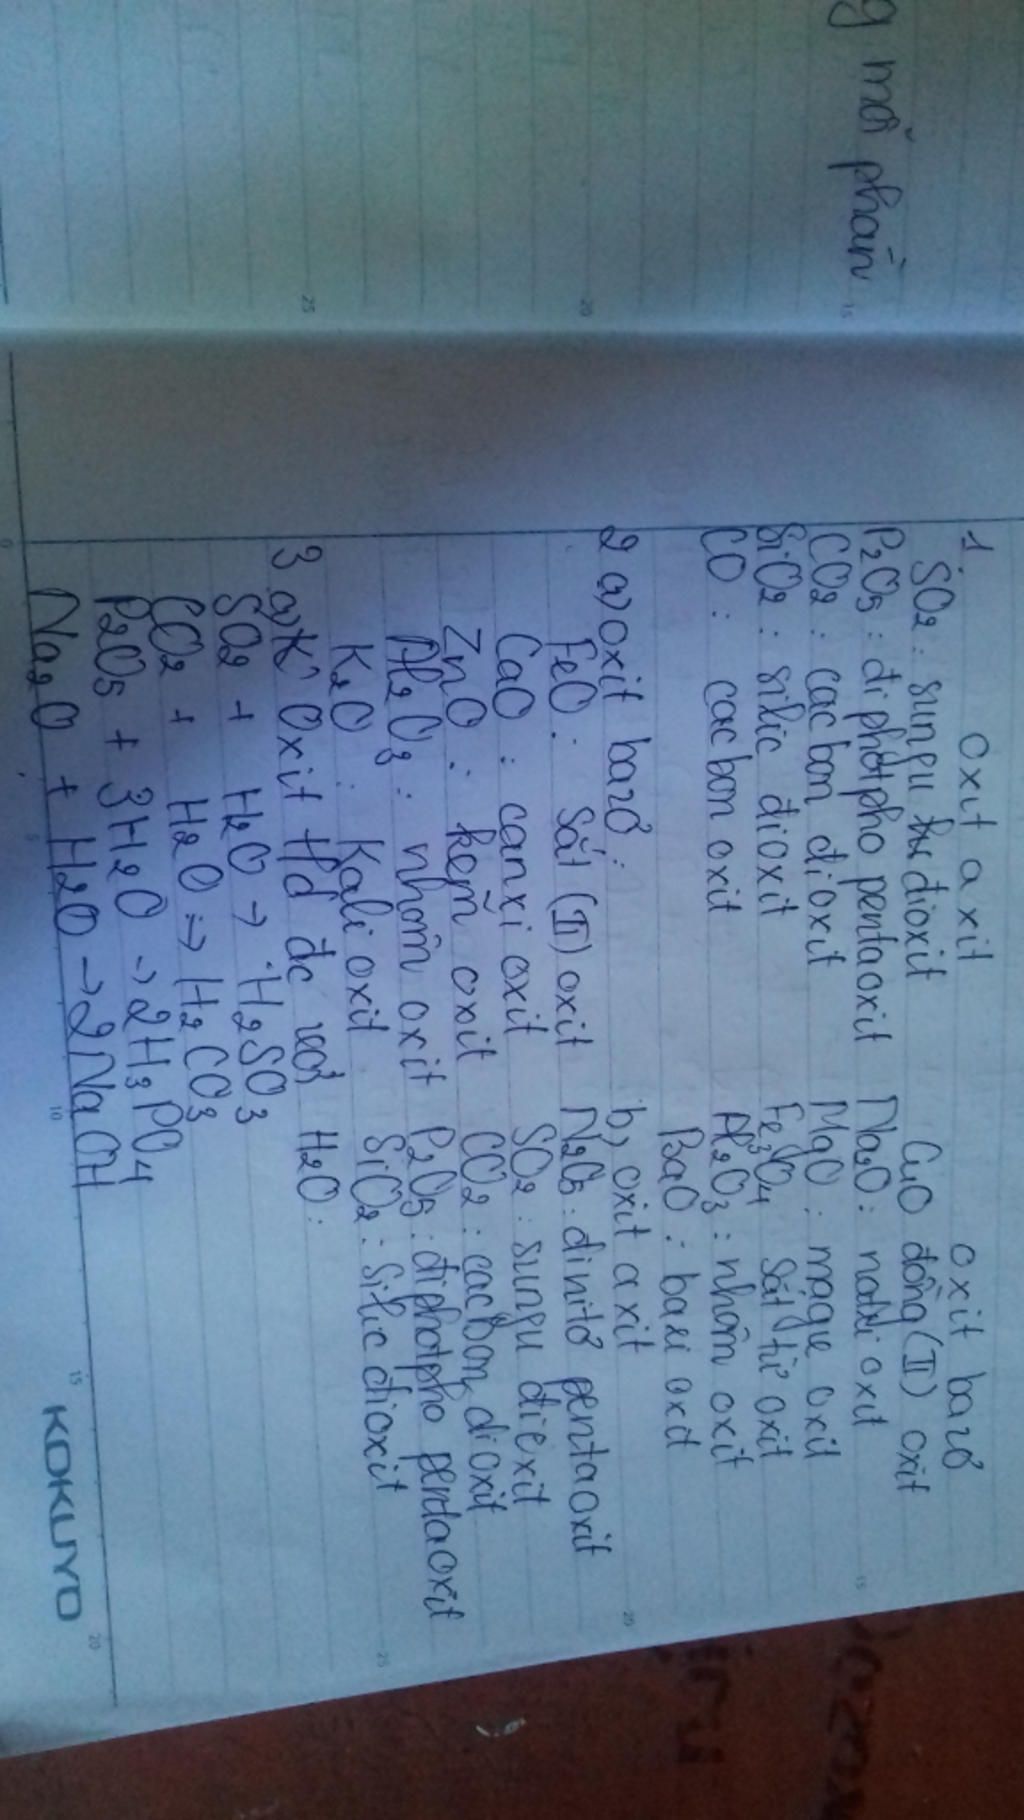 g mỗi phần
1. oxit axit oxit bazơ
SO2: sunfu đioxit CuO đồng (II) oxit
P2O5: điphotpho pentaoxit Na2O: natri oxit
CO2: cacbon đioxit MgO: magie oxit
SiO2: silic đioxit Fe3O4 Sắt từ oxit
CO: cacbon oxit Al2O3: nhôm oxit
BaO: bari oxit
2 a) oxit bazơ: b, oxit axit
FeO: Sắt (II) oxit N2O5: đinitơ pentaoxit
CaO: canxi oxit SO2: sunfu đioxit
ZnO: kẽm oxit CO2: cacbon đioxit
Al2O3: nhôm oxit P2O5: điphotpho pentaoxit
K2O: Kali oxit SiO2: silic đioxit
3 a) Oxit td đc với H2O:
SO2 + H2O → H2SO3
CO2 + H2O → H2CO3
P2O5 + 3H2O → 2H3PO4
Na2O + H2O → 2NaOH
KOKUYO